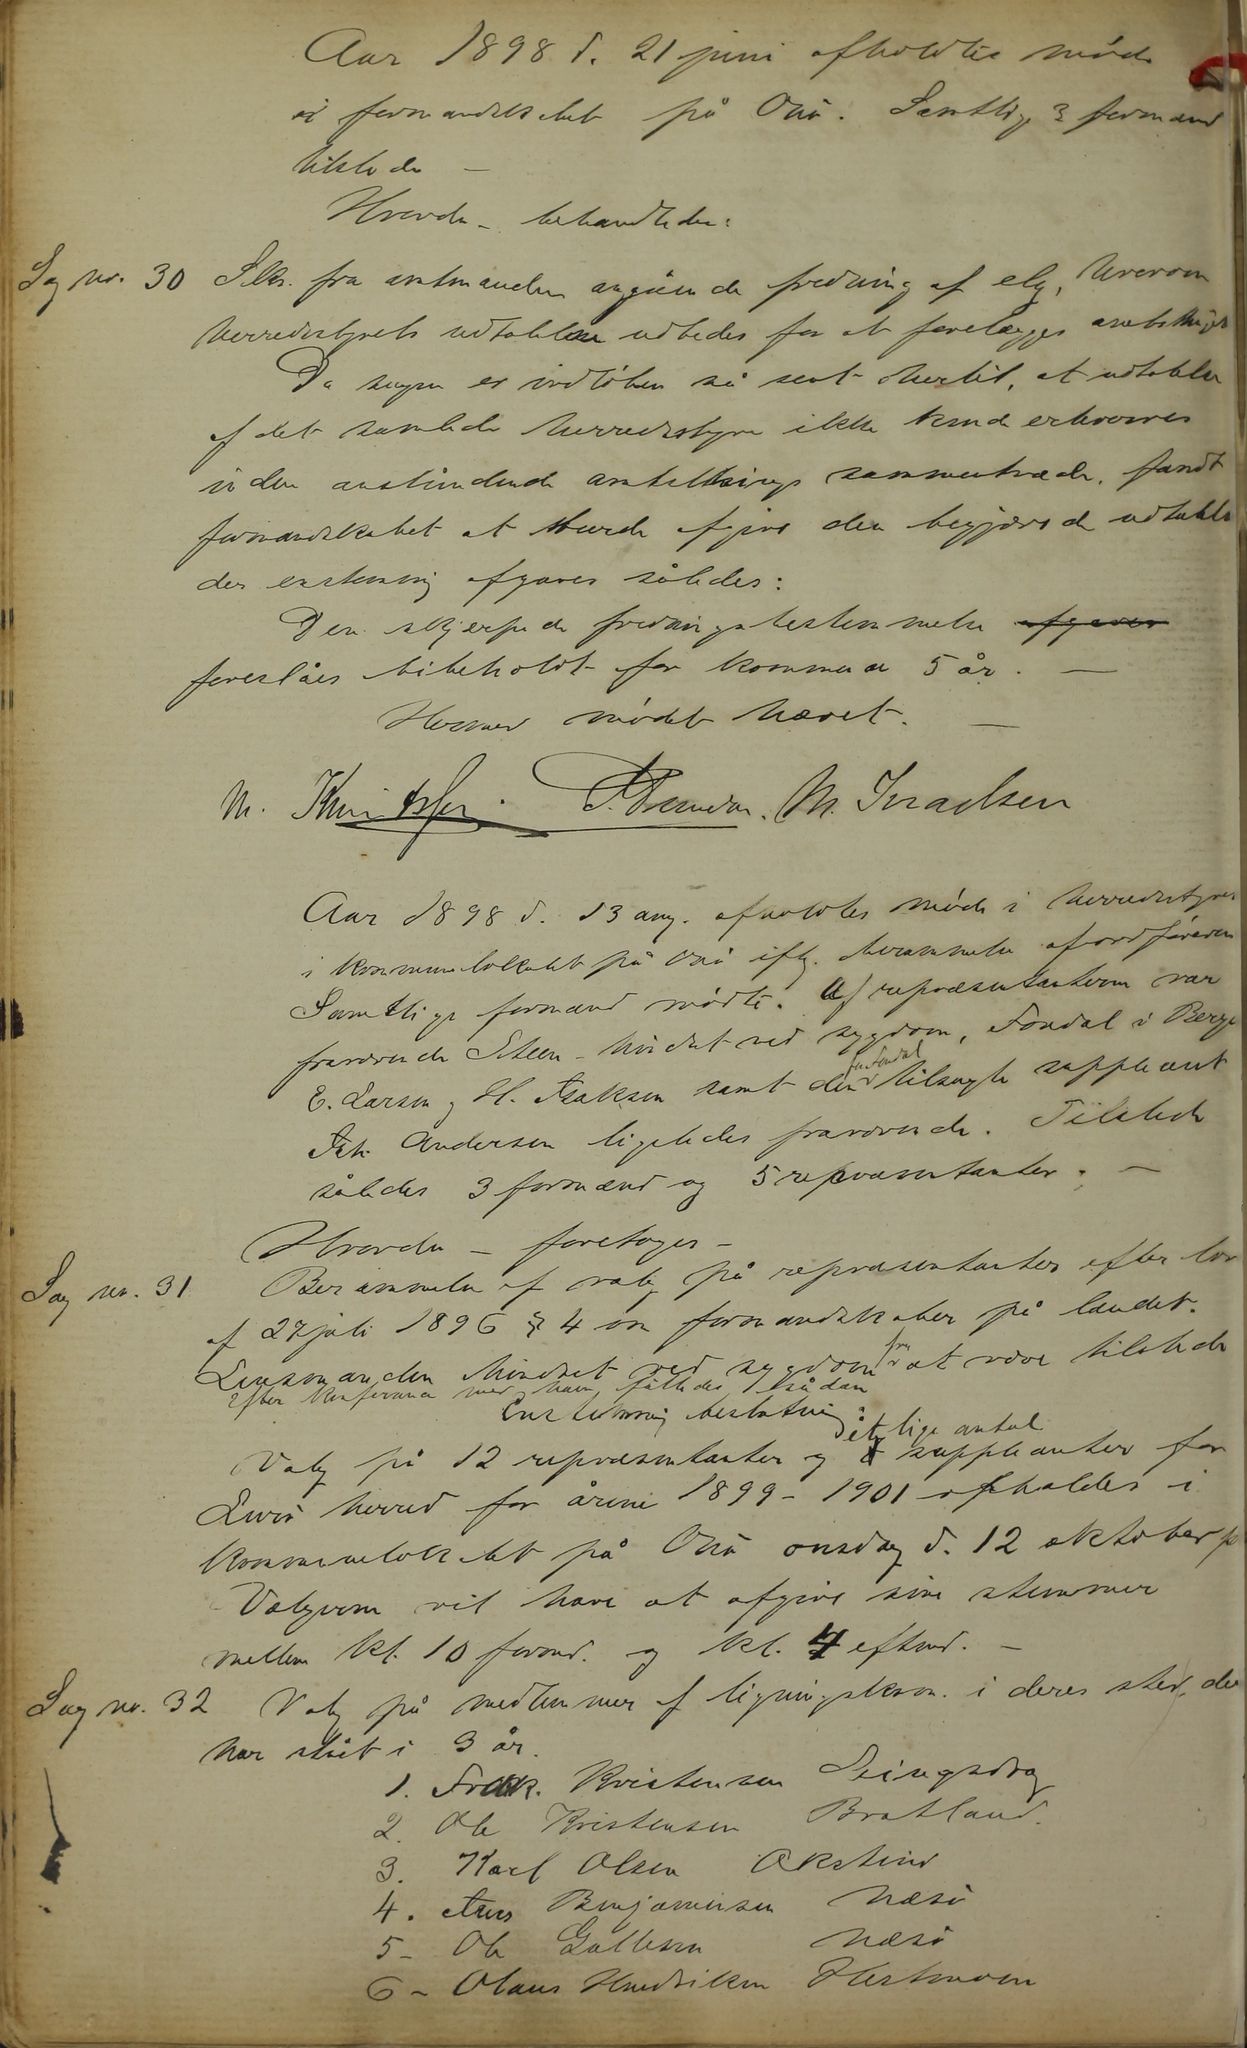 Aar 1898 d. 21 juni afholdtes møde
i formandskabet på Onø. Samtlige 3 formænd
tilstede —
Hvorda behandledes:
Sag nr. 30 Skr. fra amtmanden angående fredning af elg, hvorom
herredsstyrets udtalelse udbedes for at forelægges amtsthinget
Da sagen er indløben så sent hertil, at udtalelse
af det samlede herredsstyre ikke kunde erhverves
inden anstundende amtsthings sammentræde, fandt
formandskabet at burde afgive den begjærede udtalelse
der enstemmig afgaves således:
Den skjærpede fredningsbestemmelse afgaves
foreslåes bibeholdt for kommende 5 år. —
Hermed mødet hævet. —
M. Israelsen
Aar 1898 d. 13 aug. afholdtes møde i herredsstyret
i kommunelokalet på Onø iflg. berammelse af ordføreren
Samtlige formænd mødte. Af repræsentanterne var
fraværende Steen - hindret ved sygdom, Fondal i Berge
E. Larsen og H. Isaksen samt den for Fondal tilsagte suppleant
Andersen ligeledes fraværende. Tilstede
således 3 formænd og 5 repræsentanter. —
Hvorda — foretoges —
Sag nr. 31 Berammelse af valg på repræsentanter efter lov
af 27 juli 1896 § 4 om formandskaber på landet.
Lensmanden hindret ved sygdom fra at være tilstede
Efter konferance med ham fattedes sådan
Enstemmig beslutning:
Valg på 12 repræsentanter og et lige antal suppleanter for
Lurø herred for årene 1899 - 1901 afholdes i
kommunelokalet på Onø onsdag d. 12 oktober
Vælgerne vil have at afgive sine stemmer
mellem kl. 10 formd. og kl. 4 eftmd. —
Sag nr. 32 Valg på medlemmer af ligningskom. i deres sted, der
har stået i 3 år.
1. Fredk. Kristensen
2. Ole Kristensen Bratland.
3. Karl Olsen
4. Benjaminsen Næsø
5 - Ole Næsø
6 - Olaus Hendriksen